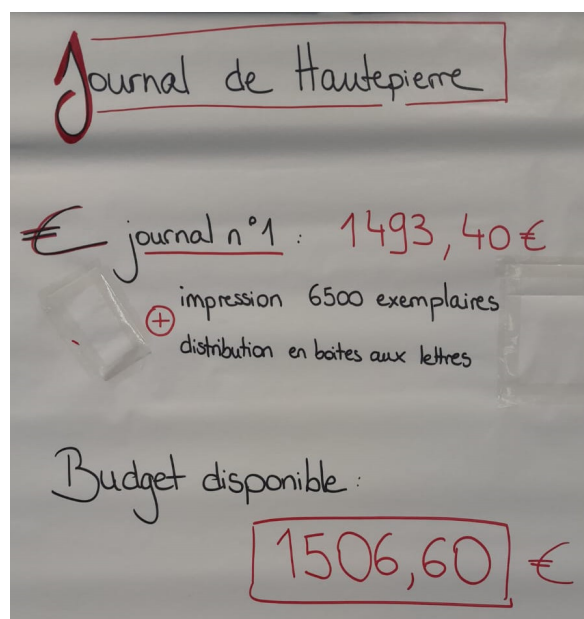 Journal de Hautepierre
€ journal n°1 : 1493,40 €
+ impression 6500 exemplaires
distribution en boites aux lettres
Budget disponible :
1506,60 €